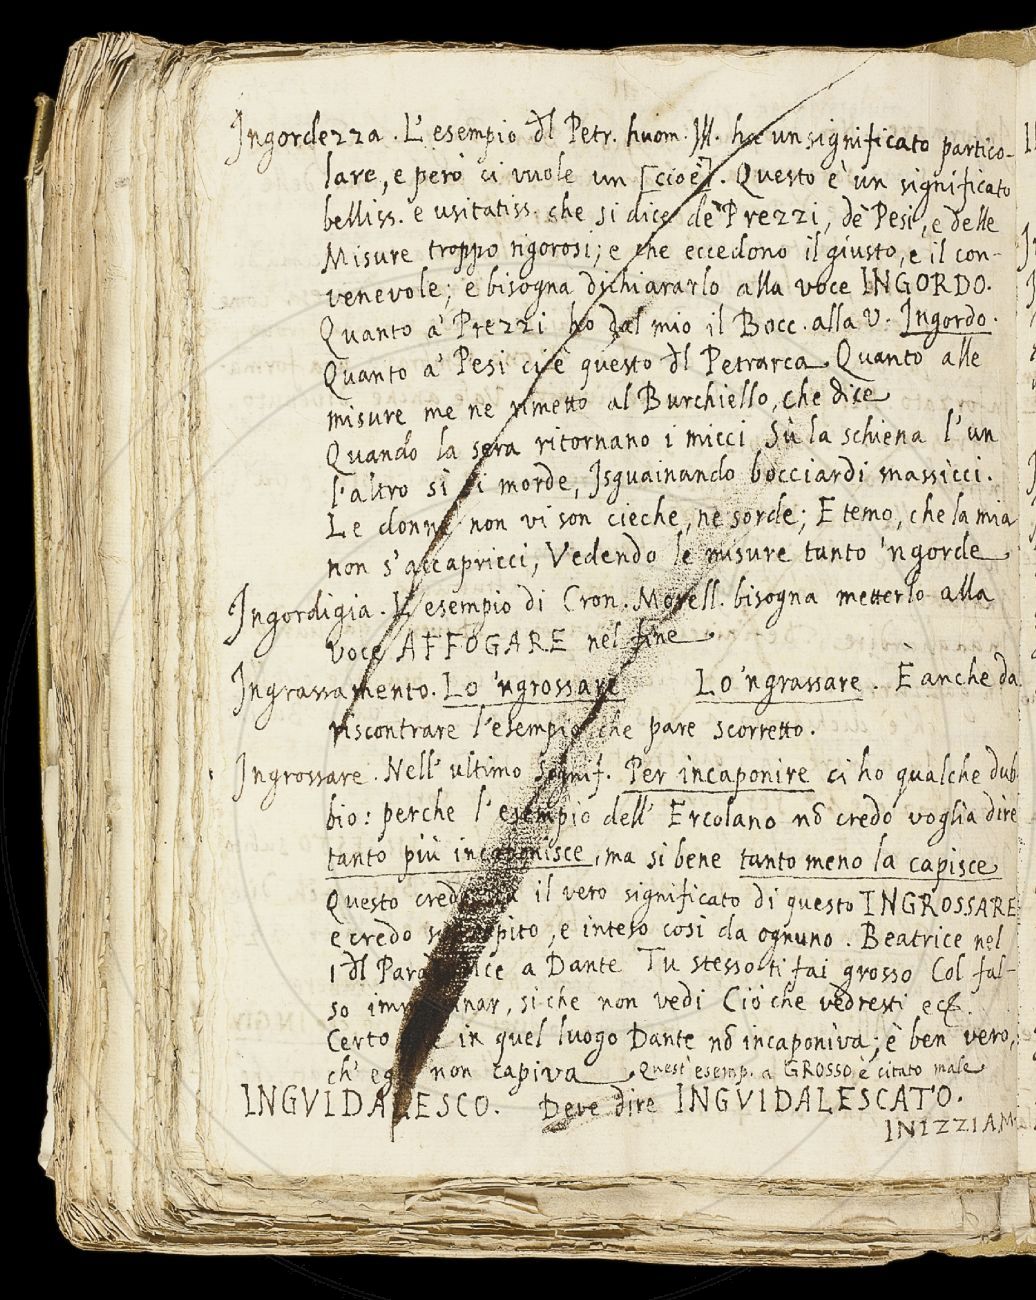 Ingordezza. L'esempio dl Petr. huom. Ill. ha un significato partico-
lare, e però ci vuole un [cioè]. Questo è un significato
belliss. e usitatiss. che si dice de' Prezzi, de' Pesi, e delle
Misure troppo rigorosi; e che eccedono il giusto, e il con-
venevole; e bisogna dichiararlo alla voce INGORDO.
Quanto a' Prezzi ho dal mio il Bocc. alla V. Ingordo.
Quanto a' Pesi ci è questo dl Petrarca. Quanto alle
misure me ne rimetto al Burchiello, che dice
Quando la sera ritornano i micci Sù la schiena l'un
l'altro si si morde, Isguainando bocciardi massicci.
Le donne non vi son cieche, nè sorde; E temo, che la mia
non s'accapricci, Vedendo le misure tanto 'ngorde
Ingordigia. L'esempio di Cron. Morell. bisogna metterlo alla
voce AFFOGARE nel fine
Ingrassamento. Lo 'ngrossare Lo 'ngrassare. E anche da
riscontrare l'esempio che pare scorretto.
Ingrossare. Nell' ultimo signif. Per incaponire ci ho qualche dub-
bio: perche l'esempio dell' Ercolano nō credo voglia dire
tanto più incaponisce, ma si bene tanto meno la capisce
Questo credo il vero significato di questo INGROSSARE
e credo e inteso così da ognuno. Beatrice nel
1 dl Dice a Dante Tu stesso ti fai grosso Col fal-
so immaginar, si che non vedi Ciò che vedresti ec.
Certo in quel luogo Dante nō incaponiva; è ben vero,
ch' egli non capiva Quest' esemp. a GROSSO è citato male
INGVIDALESCO. Deve dire INGVIDALESCATO.
INIZZIAM